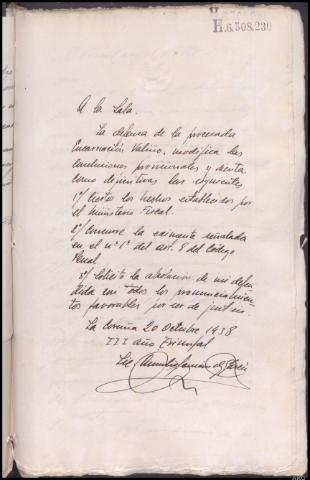 H.6.508.230
A la Sala.
La defensa de la procesada
Encarnación Valiño, modifica las
conclusiones provisionales y
como definitivas las siguientes
1ª/ Ciertos los hechos establecidos por
el Ministerio Fiscal.
2ª/ Concurre la eximente señalada
en el nº 1º del art. 8 del Código
Penal
3ª/ Solicito la absolución de mi defen
dida con todos los pronunciamien
tos favorables por ser de justicia
La Coruña 20 Octubre 1938
III año Triunfal